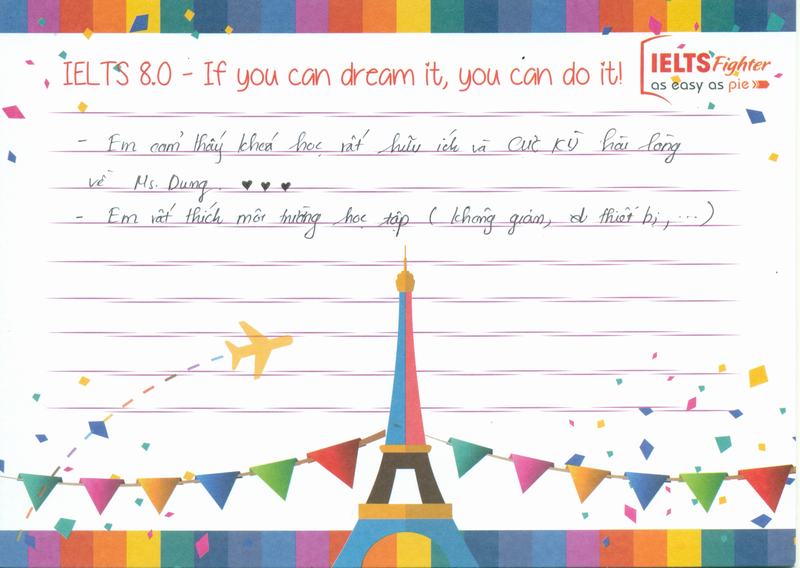 IELTS 8.0 - If you can dream it, you can do it!
IELTS Fighter
as easy as pie
- Em cảm thấy khoá học rất hữu ích và CỰC KỲ hài lòng
về Ms. Dung. ♥ ♥ ♥
- Em rất thích môi trường học tập ( không gian, thiết bị, ...)